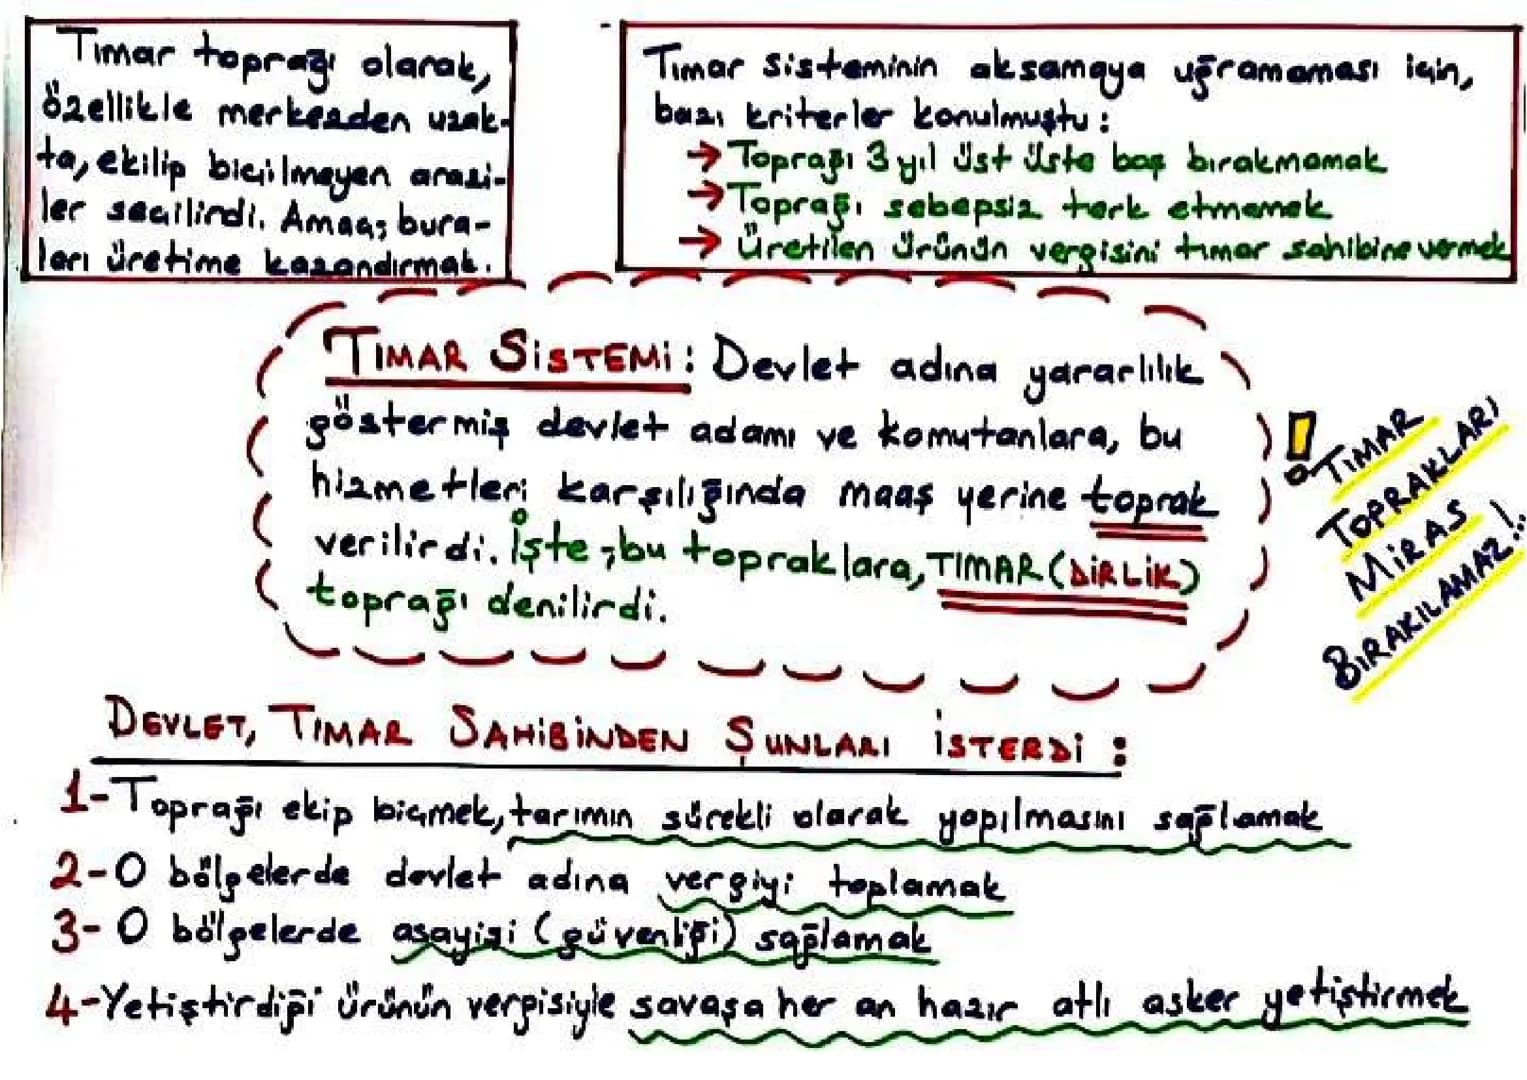 Tımar toprağı olarak,
özellikle merkezden uzak-
ta, ekilip biçilmeyen arazi-
ler seçilirdi. Amaç; bura-
ları üretime kazandırmak.
Tımar sisteminin aksamaya uğramaması için,
bazı kriterler konulmuştu:
→ Toprağı 3 yıl üst üste boş bırakmamak
→ Toprağı sebepsiz terk etmemek
→ Üretilen ürünün vergisini tımar sahibine vermek
TIMAR SİSTEMİ: Devlet adına yararlılık
göstermiş devlet adamı ve komutanlara, bu
hizmetleri karşılığında maaş yerine toprak
verilirdi. İşte, bu topraklara, TIMAR (DİRLİK)
toprağı denilirdi.
! TIMAR
TOPRAKLARI
MİRAS
BIRAKILAMAZ!..
DEVLET, TIMAR SAHİBİNDEN ŞUNLARI İSTERDİ:
1-Toprağı ekip biçmek, tarımın sürekli olarak yapılmasını sağlamak
2-O bölgelerde devlet adına vergiyi toplamak
3-O bölgelerde asayişi (güvenliği) sağlamak
4-Yetiştirdiği ürünün vergisiyle savaşa her an hazır atlı asker yetiştirmek